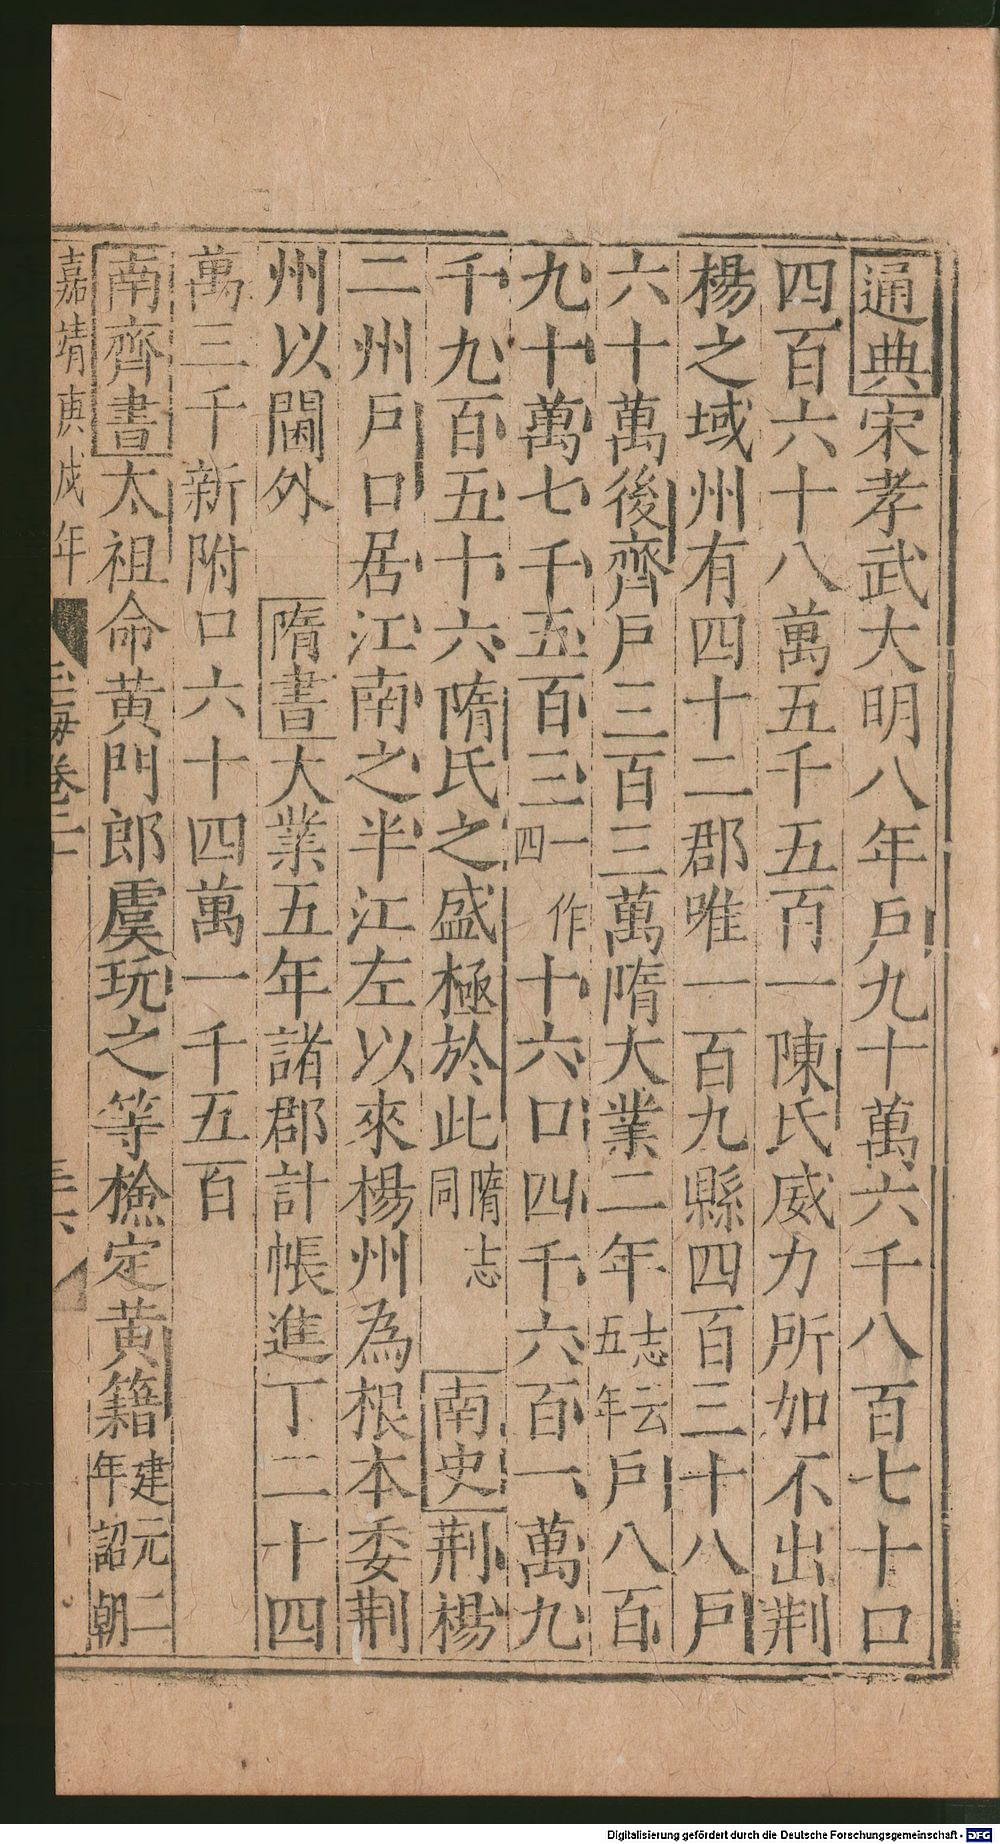 通典宋孝武大明八年戶九十萬六千八百七十口
四百六十八萬五千五百一陳氏威力所加不出荆
楊之域州有四十二郡唯一百九縣四百三十八戶
六十萬後齊戶三百三萬隋大業二年志云五年戶八百
九十萬七千五百三一作四十六口四千六百一萬九
千九百五十六隋氏之盛極於此隋志同南史荆楊
二州戶口居江南之半江左以來楊州為根本委荆
州以閫外隋書大業五年諸郡計帳進丁二十四
萬三千新附口六十四萬一千五百
南齊書太祖命黄門郎虞玩之等檢定黄籍建元二年詔朝
嘉靖庚戌年 玉海卷二十
Digitalisierung gefördert durch die Deutsche Forschungsgemeinschaft - DFG